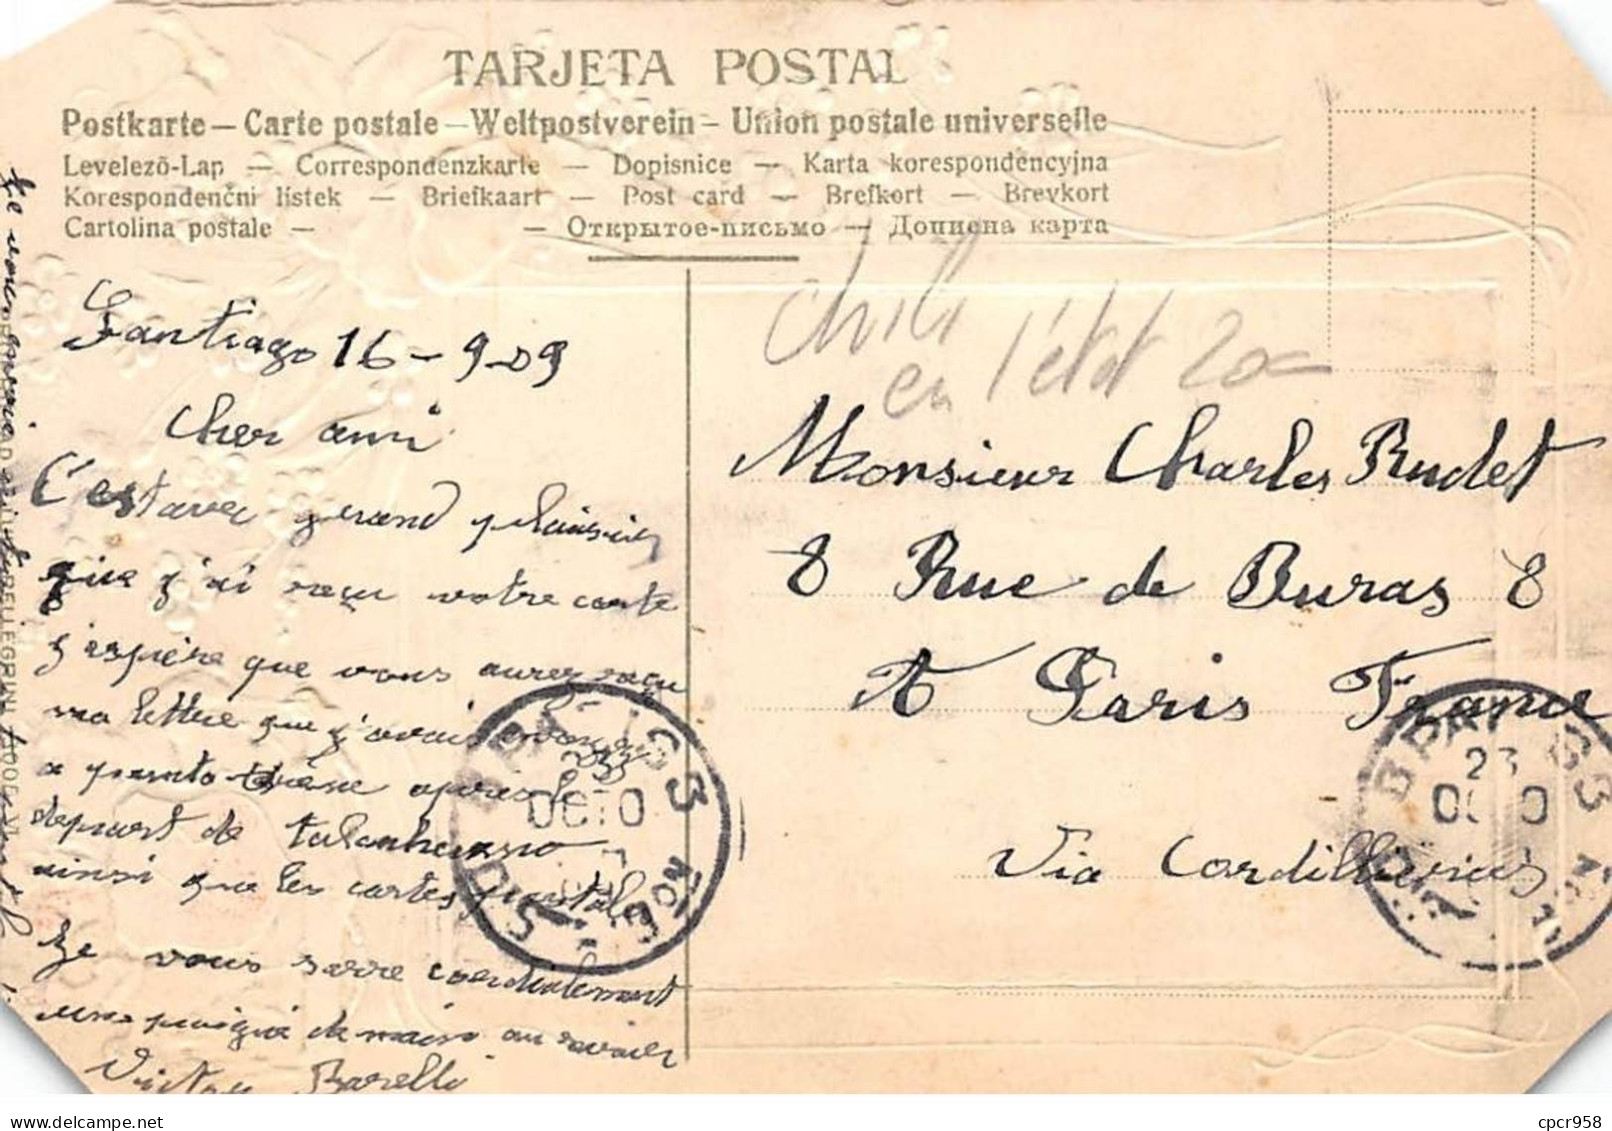 TARJETA POSTAL
Postkarte — Carte postale — Weltpostverein — Union postale universelle
Levelezõ-Lap — Correspondenzkarte — Dopisnice — Karta korespondencyjna
Korespondenční lístek — Briefkaart — Post card — Brefkort — Brevkort
Cartolina postale — — Открытое-письмо — Дописна карта
Chili
en l'état 20
Santiago 16-9-09
Cher ami
C'est avec grand plaisir
que j'ai reçu votre carte
j'espère que vous aurez reçu
ma lettre que j'avais
a punta après le
depart de talcahuano
ainsi que les cartes postales
Je vous serre cordialement
une poigné de main au revoir
Victor Barelli
Je vous
Monsieur Charles Rudet
8 Rue de Buras 8
A Paris France
Via Cordillieras
OCTO
23
cpcr958